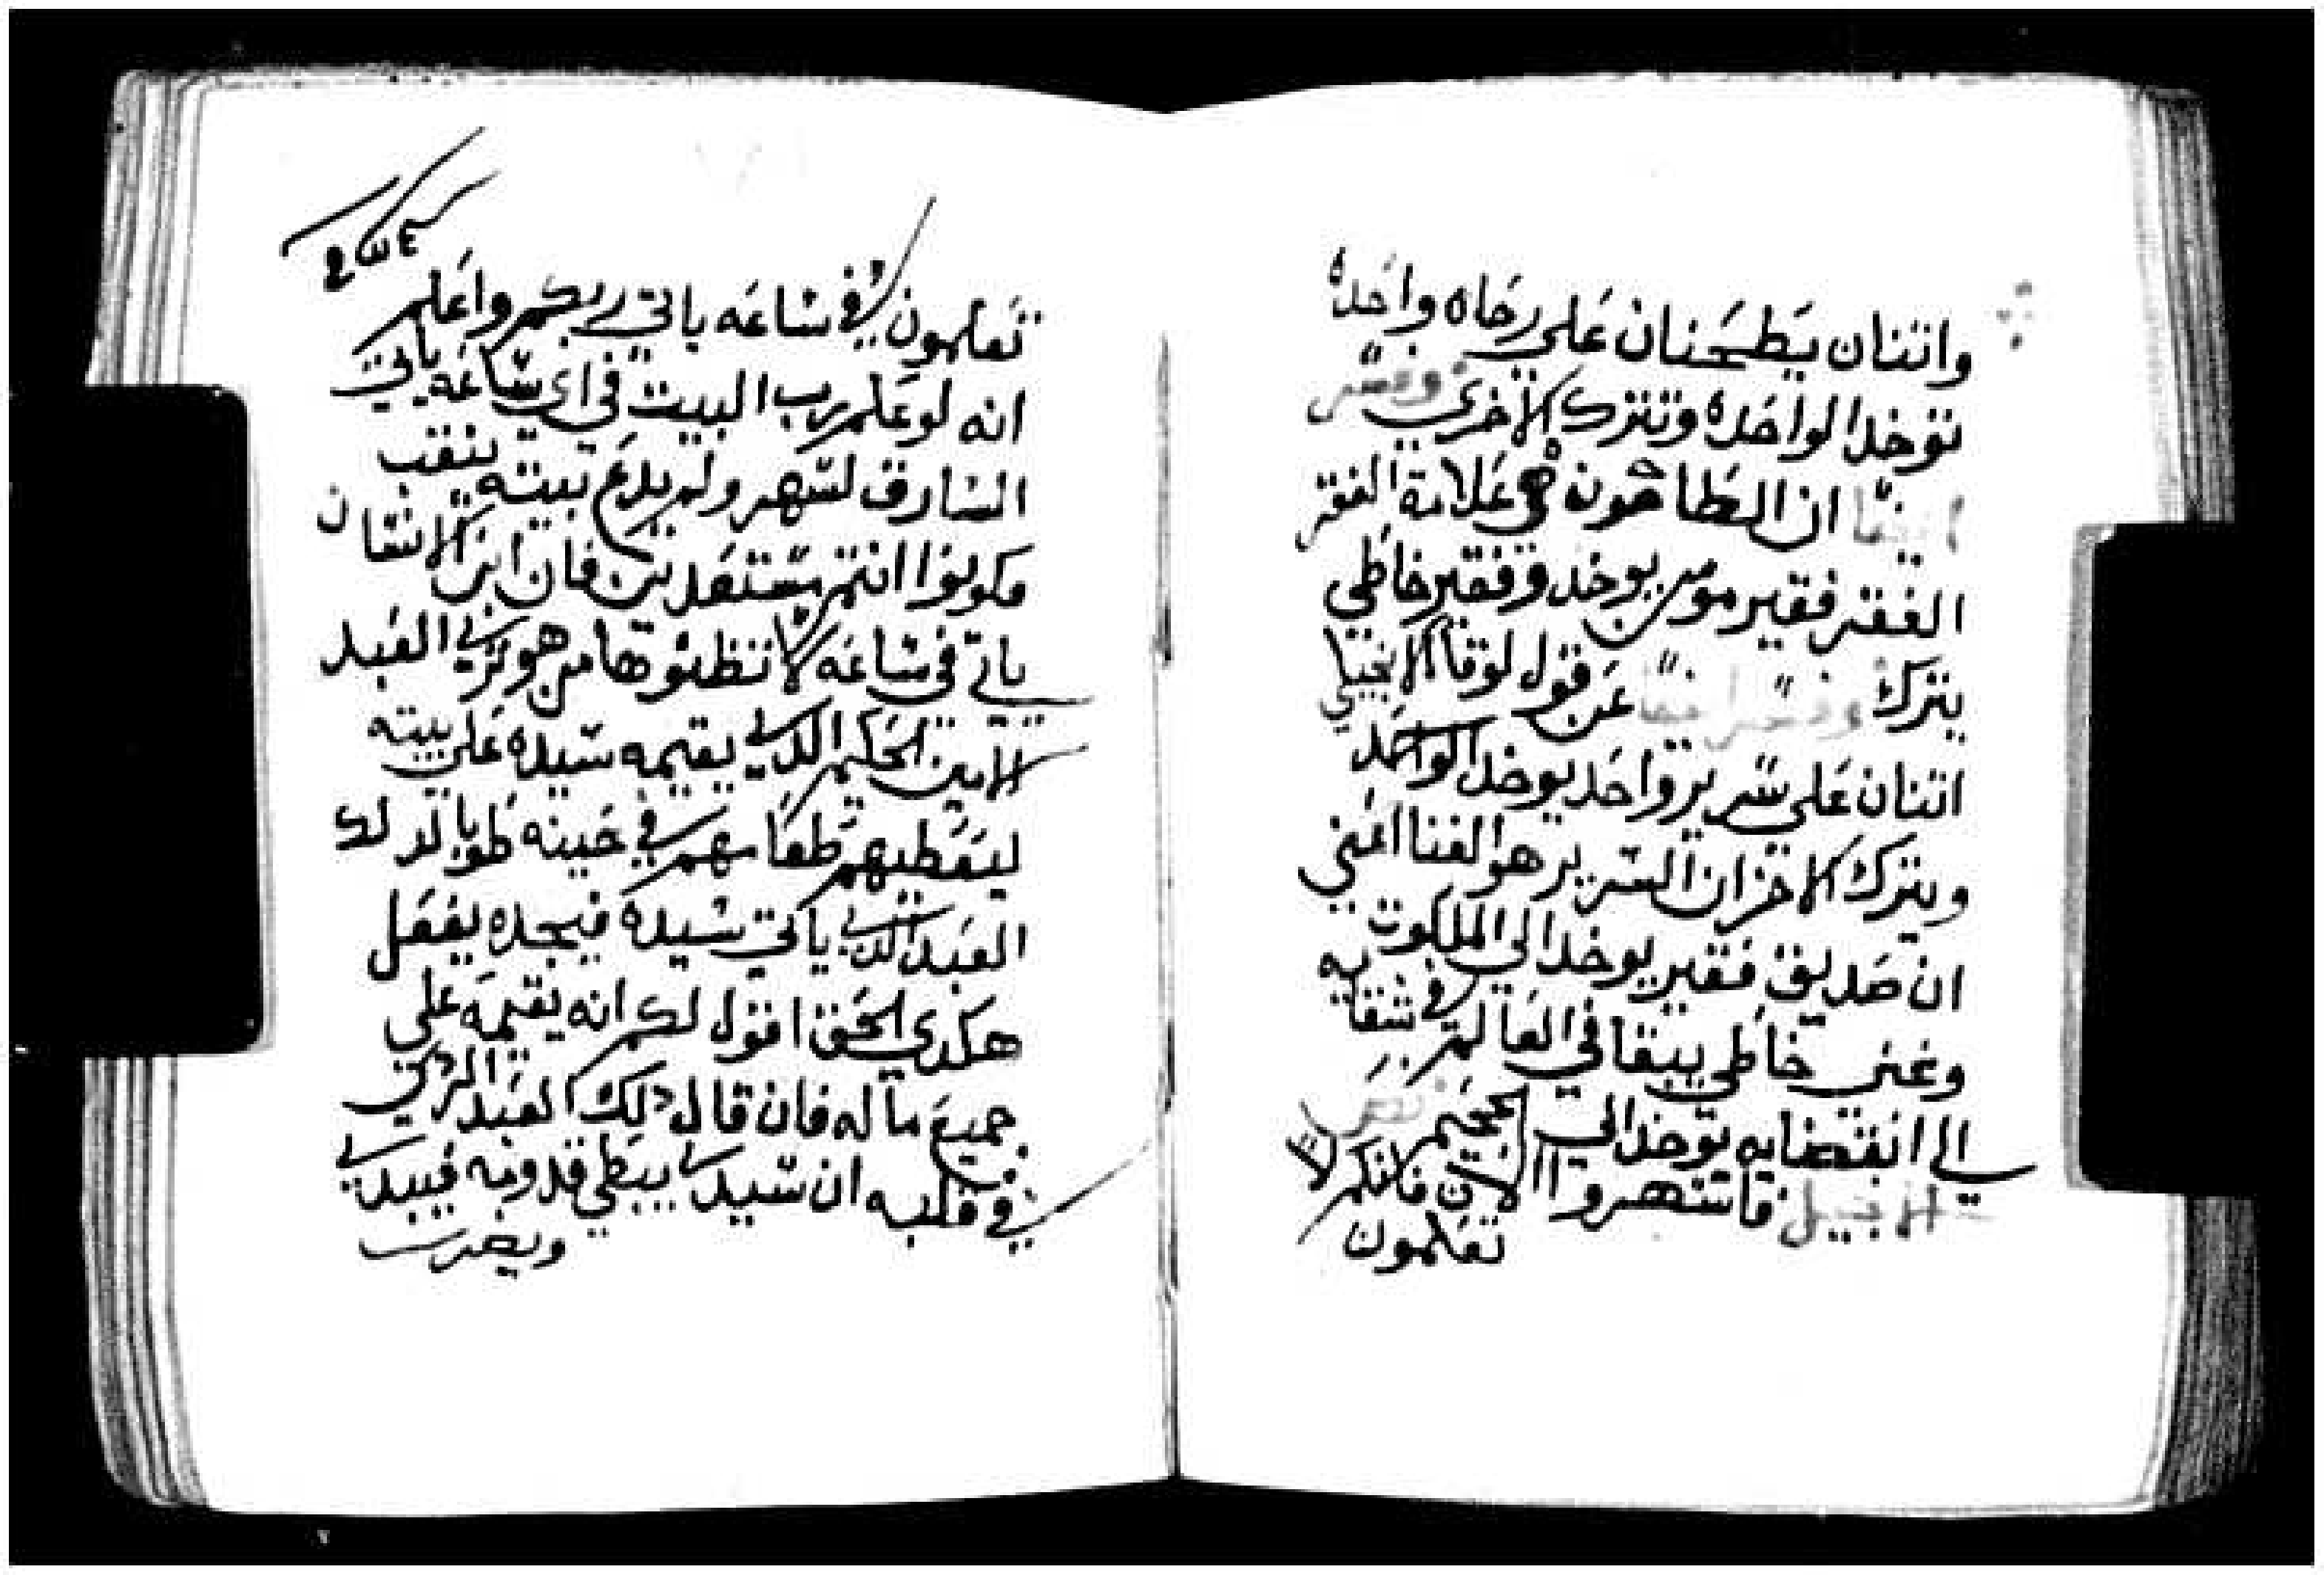 واتنان يطحنان على رحاه واحده
توخد الواحده وتترك الاخرى وفسر
ايضا ان الطاحون هي علامة الفقر
الفقر فقير مومن يوخد وفقير خاطي
يترك وفسر ايضا عن قول لوقا الانجيلي
اتنان على سرير واحد يوخد الواحد
ويترك الاخر ان السرير هو الغنا اعني
ان صديق فقير يوخد الي الملكوت
وغني خاطي يبقا في العالم في شقايه
الي انقضايه يوخد الي الجحيم نص
الانجيل فاسهروا الان فانكم لا
تعلمون
تعلمون في ساعه ياتي ربكم واعلم
انه لو علم رب البيت في اي ساعه ياتي
السارق لسهر ولم يدع بيته ينقب
فكونوا انتم مستعدين فان ابن الانسان
ياتي في ساعه لا تظنوها من هو تري العبد
الامين الحكيم الدي يقيمه سيده على بيته
ليعطيهم طعامهم في حينه طوبا لدلك
العبد الدي ياتي سيده فيجده يفعل
هكدي الحق اقول لكم انه يقيمه على
جميع ماله فان قال دلك العبد الردي
في قلبه ان سيدي يبطي قدومه فيبدي
ويضرب